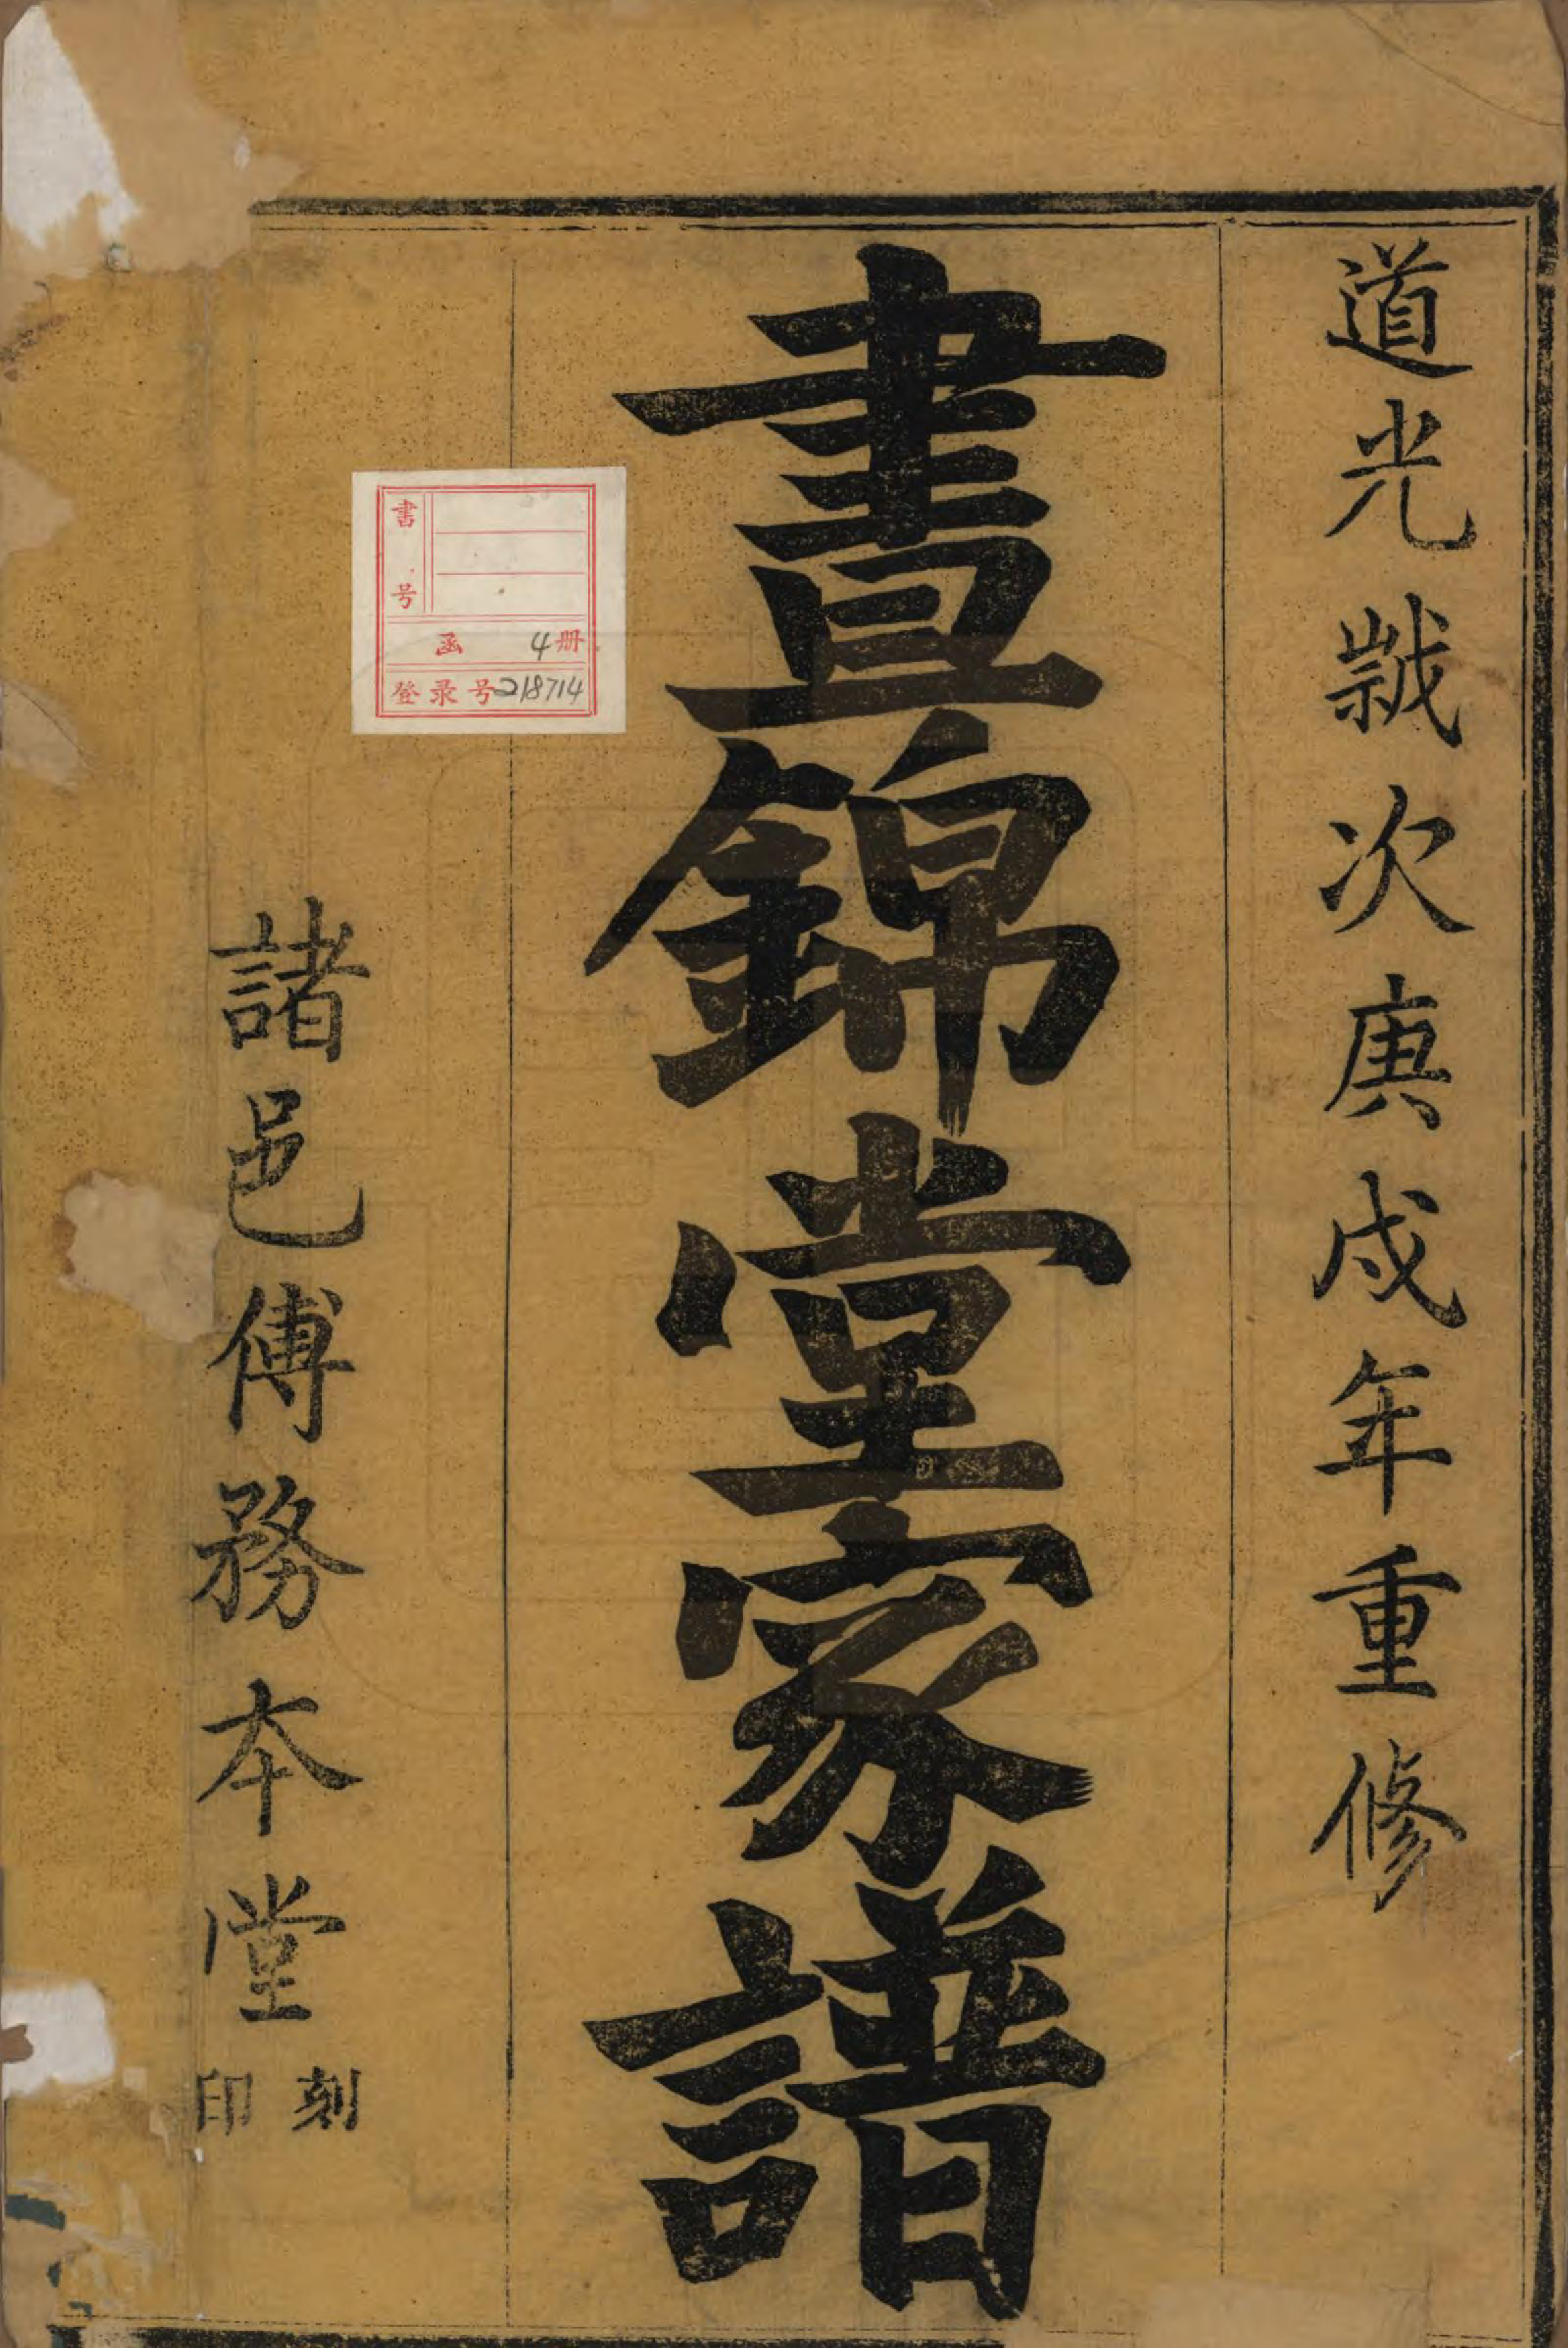 道光歳次庚戌年重修
晝錦堂家譜
諸邑傅務本堂
刻印
書号
函 4册
登录号218714